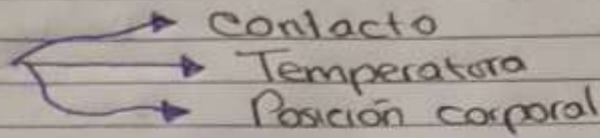 Contacto
Temperatura
Posición corporal